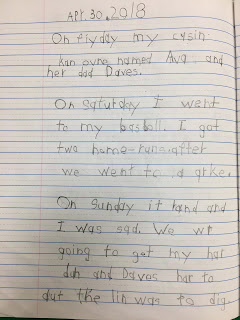 Apr. 30. 2018
On fiyday my cysin
Kan ovre named Ava and
her dad Daves.
On saturday I went
to my basball. I got
two home-runs after
we went to a
On Sunday it rand and
I was sad. We wr
going to get my har
duh and Davos har to
dut the lin was to dig